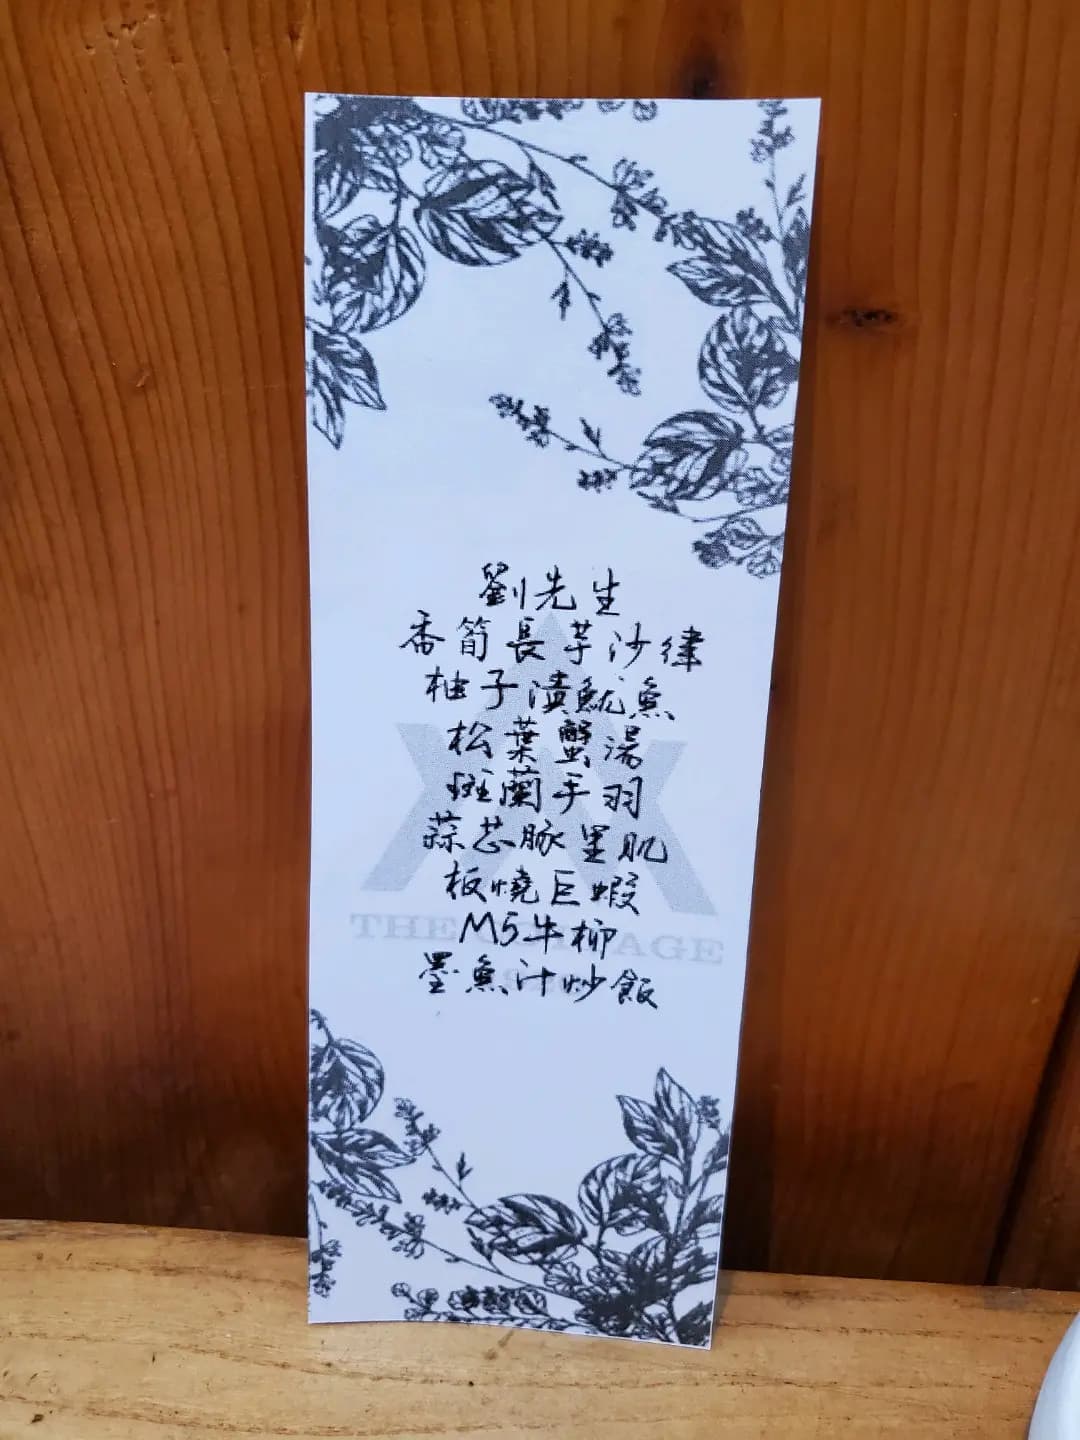 劉先生
香筍長芋沙律
柚子漬魷魚
松葉蟹湯
斑蘭手羽
蒜芯豚星肌
板燒巨蝦
M5牛柳
墨魚汁炒飯
THE COTTAGE